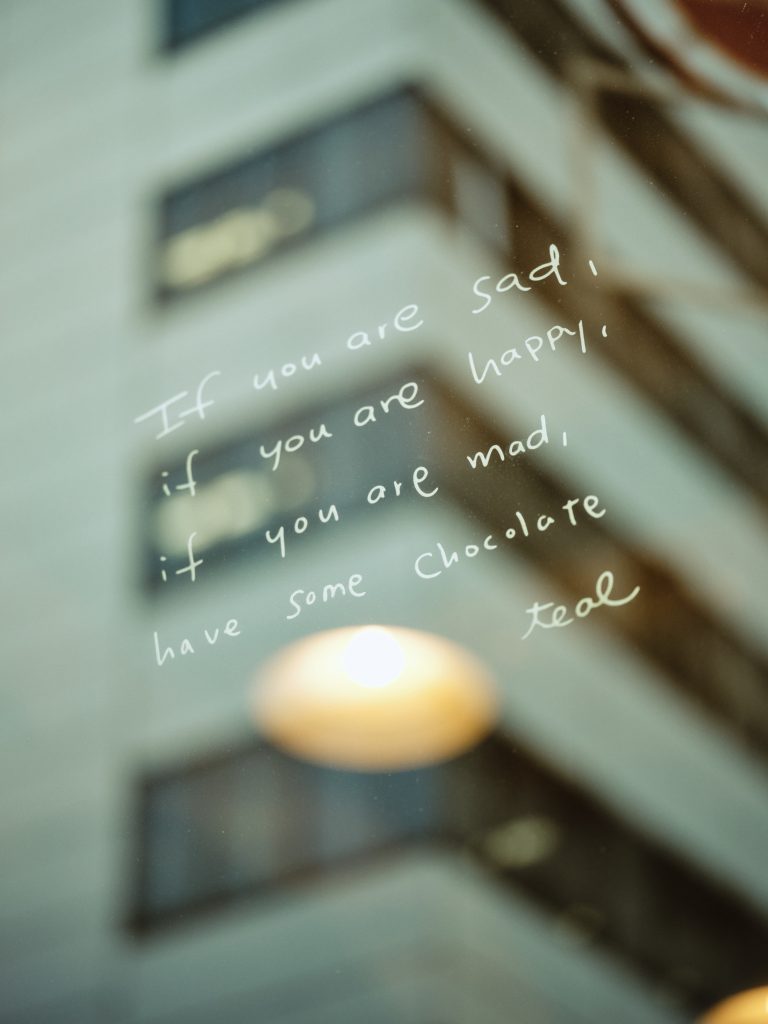 If you are sad,
if you are happy,
if you are mad,
have some chocolate
teal